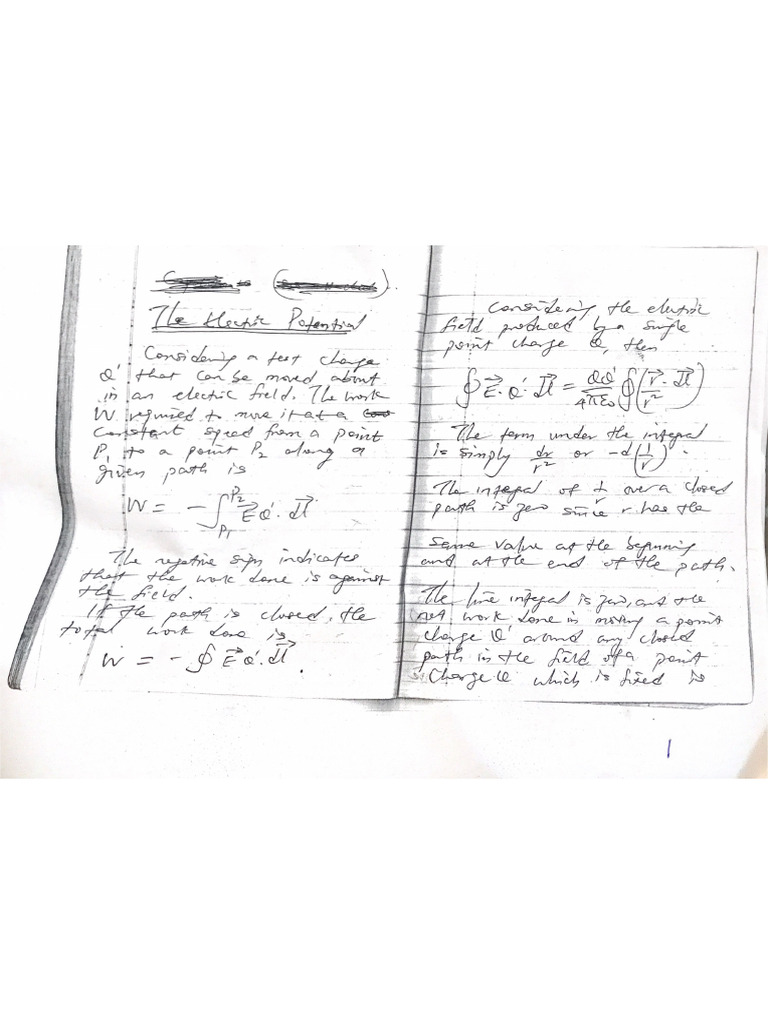 The Electric Potential
Considering a test charge
Q' that can be moved about
in an electric field. The work
W required to move it at a
constant speed from a point
P₁ to a point P₂ along a
given path is
W = - ∫_{P₁}^{P₂} E⃗ Q'. dl⃗
The negative sign indicates
that the work done is against
the field.
If the path is closed, the
total work done is
W = - ∮ E⃗ Q'. dl⃗.
Considering the electric
field produced by a single
point charge Q, then
∮ E⃗. Q'. dl⃗ = QQ'/4πε₀ ∮ (r⃗. dl⃗/r²)
The term under the integral
is simply dr/r² or -d(1/r).
The integral of 1/r over a closed
path is zero since r has the
same value at the beginning
and at the end of the path.
The line integral is zero, and the
net work done in moving a point
charge Q' around any closed
path in the field of a point
charge Q which is fixed is
1